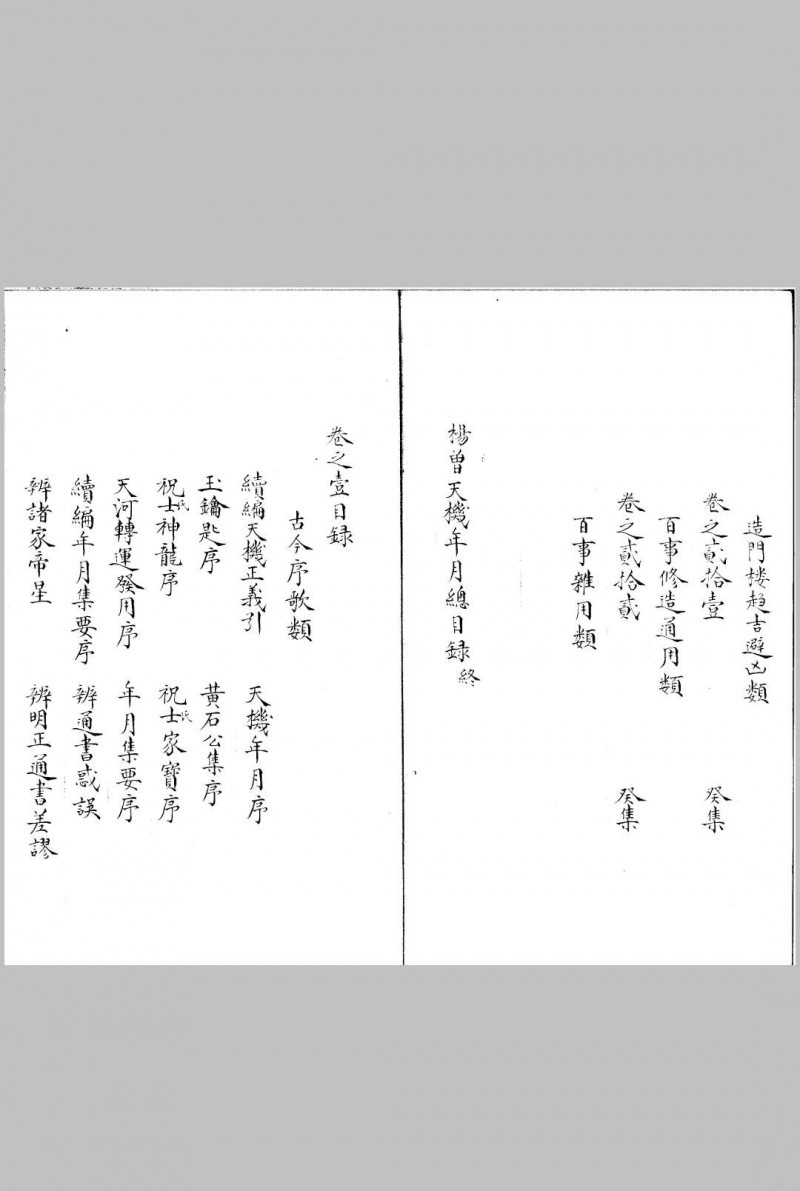 造門楼趋吉避凶類
卷之貳拾壹　癸集
百事修造通用類
卷之貳拾貳　癸集
百事雜用類
楊曽天機年月總目録終
卷之壹目録
古今序歌類
續編天機正義引　天機年月序
玉鑰匙序　黄石公集序
祝氏士神龍序　祝氏士家寶序
天河轉運發用序　年月集要序
續編年月集要序　辨通書惑誤
辨諸家帝星　辨明正通書差謬